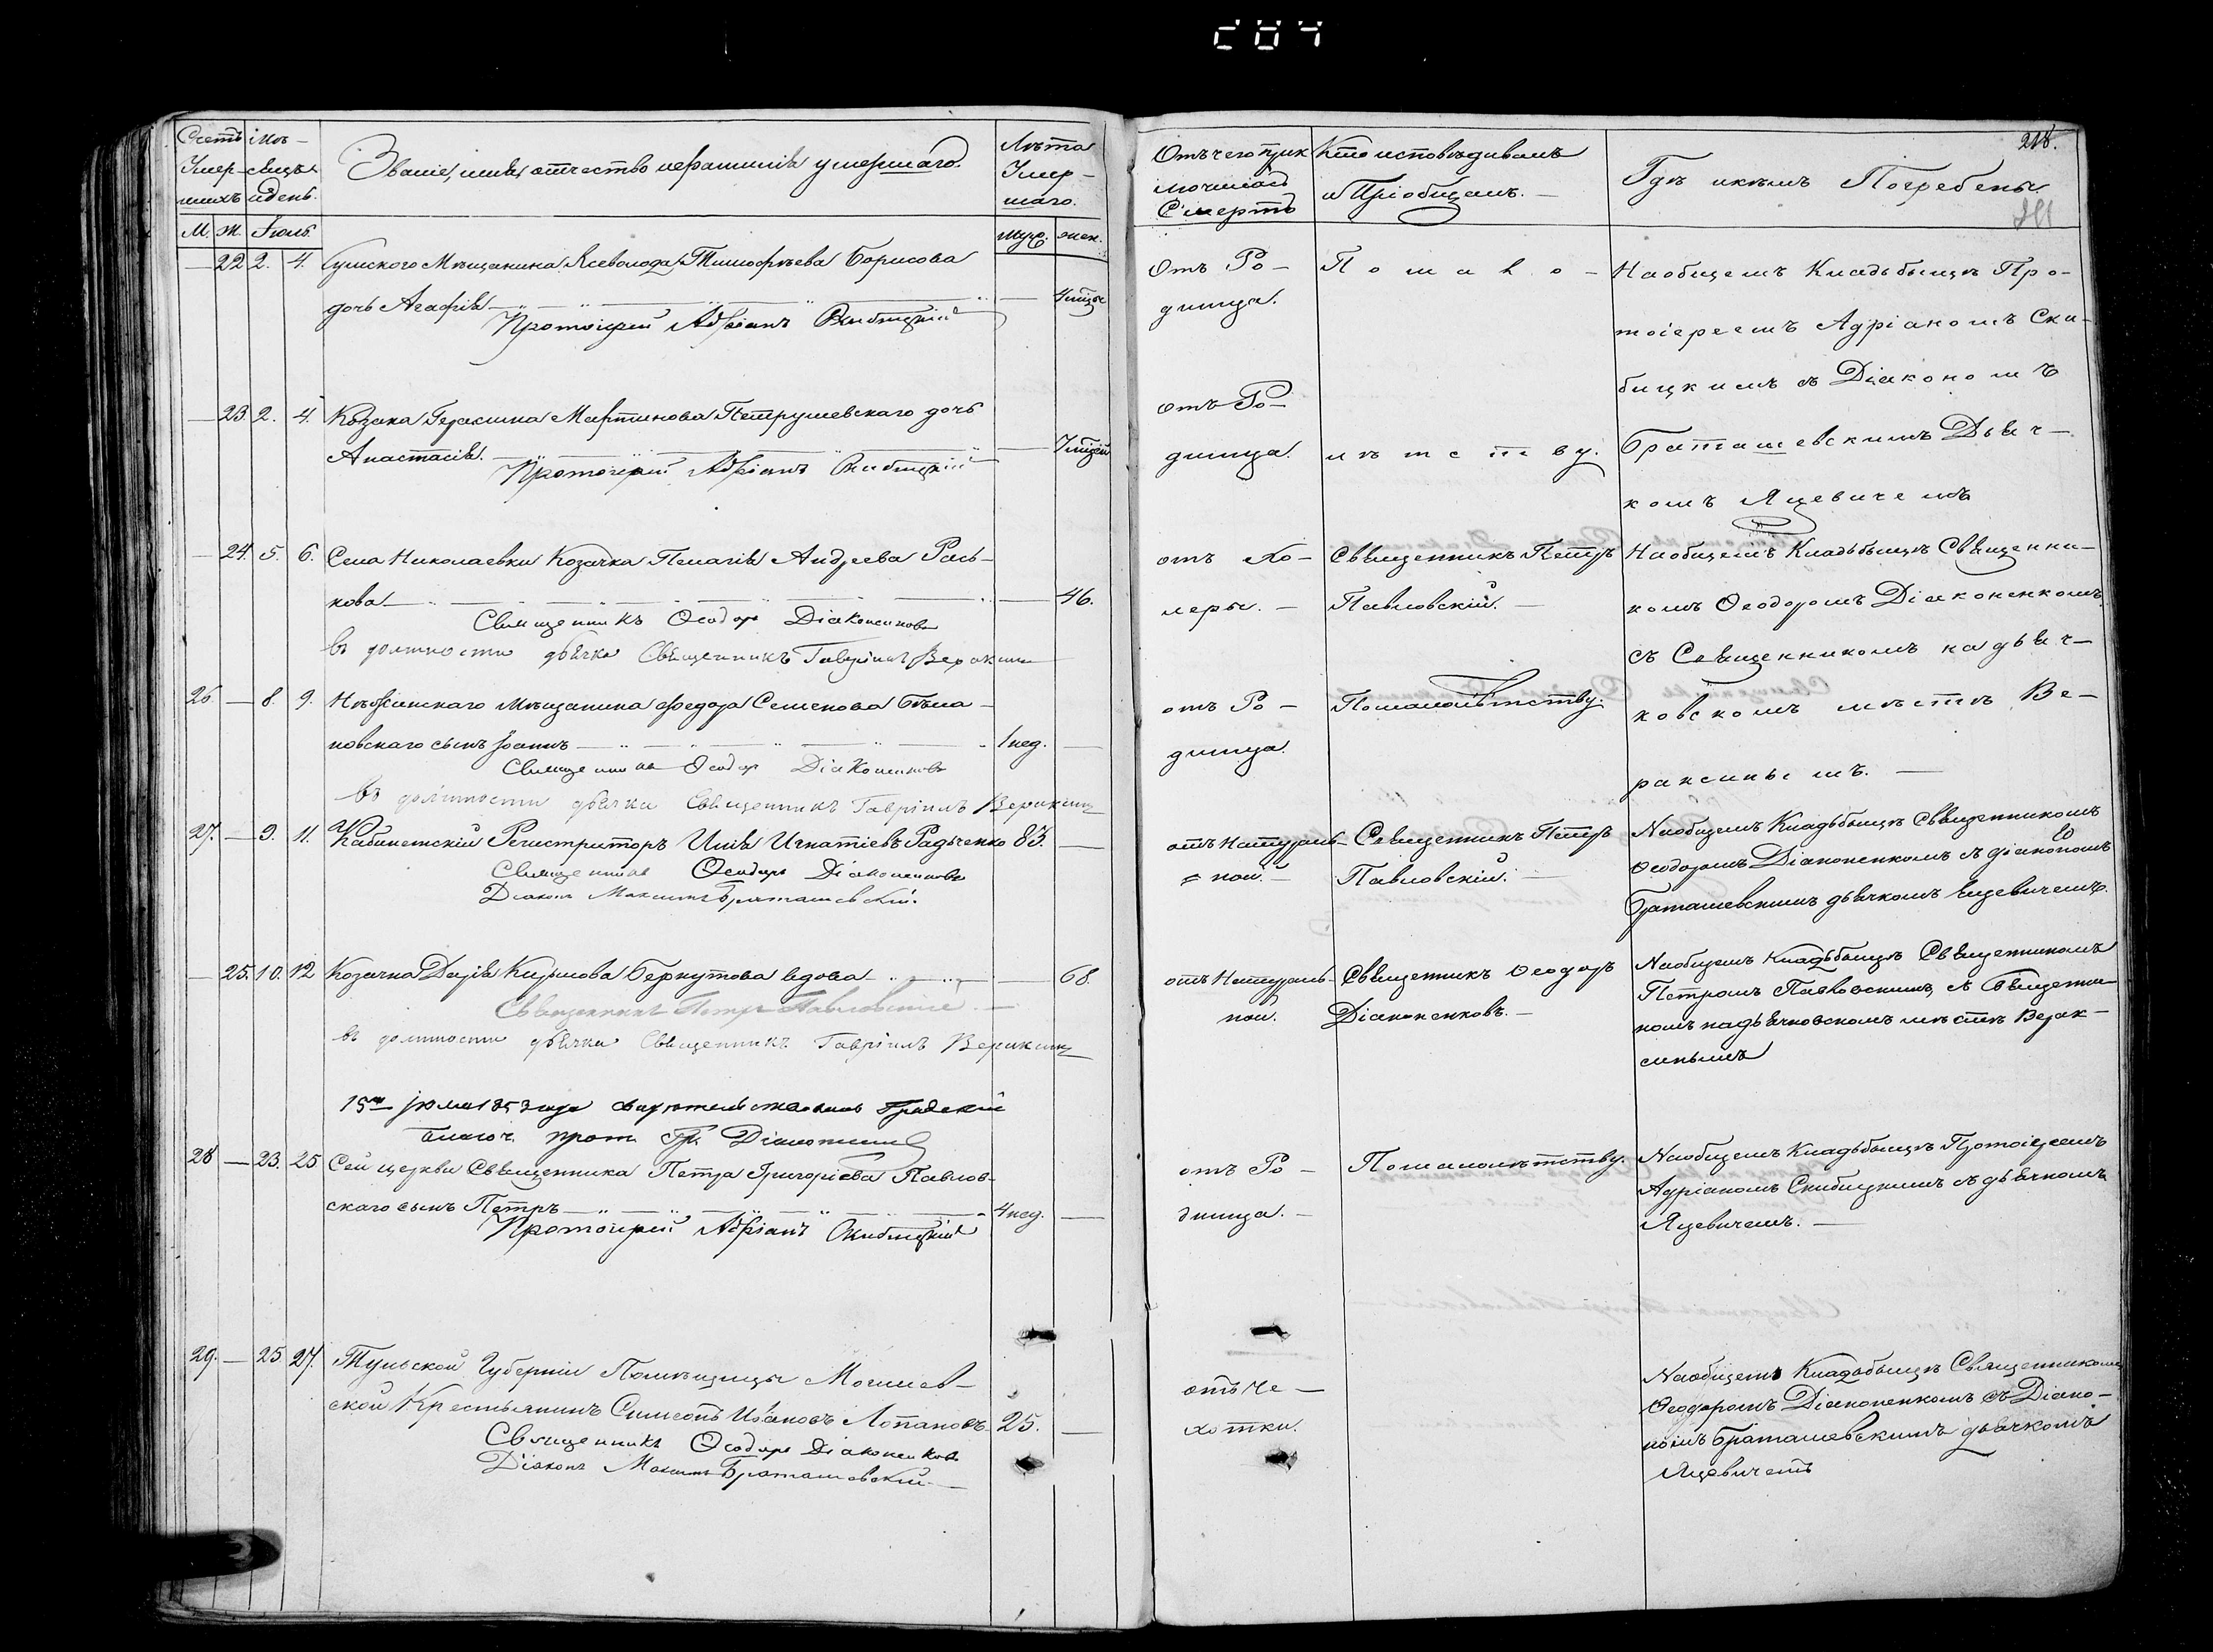 218.
Счетъ Умер-шихъ
Мѣ-сяцъ и день.
Званіе, имя, отчество и фамилія умершаго.
Лѣта Умер-шаго.
Отъ чего приключилась Смерть
Кто исповѣдывалъ и Пріобщалъ.
Гдѣ и кѣмъ Погребены
М. Ж. Іюль.
муж. жен.
22 2. 4. Сумского Мѣщанина Всеволода Тимофѣева Борисова
дочь Агафія
Протоіерей Адріанъ Скибицкій
Отъ Ро-
димца.
По мало-
На общемъ Кладьбыщѣ Про-
тоіереемъ Адріаномъ Ски-
бицкимъ съ Діакономъ
23. 2. 4. Козака Герасима Мартинова Петрушевскаго дочь
Анастасія.
Протоіерей Адріанъ Скибицкій
отъ Ро-
димца.
лѣтству.
Браташевскимъ Дьяч-
комъ Яцевичемъ
24. 5. 6. Села Николаевки Козачка Пелагія Андреева Рась-
кова 46.
Священникъ Ѳеодоръ Діаконенковъ
въ должности дьячка Священникъ Гавріилъ Вераксинъ
отъ Хо-
леры.
Священникъ Петръ
Павловскій.
На общемъ Кладьбыщѣ Священни-
комъ Ѳеодоромъ Діаконенкомъ
съ Священникомъ на дьяч-
26. 8. 9. Нѣжинскаго мѣщанина Федора Семенова Бѣла-
новскаго сынъ Іоаннъ 1 нед.
Священникъ Ѳеодоръ Діаконенковъ
въ должности дьячка Священникъ Гавріилъ Вераксинъ
отъ Ро-
димца.
По малолѣтству.
ковскомъ мѣстѣ Ве-
раксинымъ.
27. 9. 11. Кабинетскій Регистраторъ Илія Игнатіевъ Радченко 83.
Священникъ Ѳеодоръ Діаконенковъ
Діаконъ Максимъ Браташевскій.
отъ Натураль-
ной.
Священникъ Петръ
Павловскій.
На общемъ Кладьбыщѣ Священникомъ
Ѳеодоромъ Діаконенкомъ съ діакономъ
Браташевскимъ дьячкомъ Яцевичемъ.
25. 10. 12 Козачка Дарія Кирилова Беркутова вдова 68.
Священникъ Петръ Павловскій
въ должности дьячка Священникъ Гавріилъ Вераксинъ
отъ Натураль-
ной.
Священникъ Ѳеодоръ
Діаконенковъ.
На общемъ Кладьбыщѣ Священникомъ
Петромъ Павловскимъ, съ Священни-
комъ на дьячковскомъ мѣстѣ Верак-
синымъ
15 іюля 1853 года свидетельствовалъ Градскій
благоч. прот. Гр. Діаконенко
28 23. 25 Сей церкви Священника Петра Григоріева Павлов-
скаго сынъ Петръ 4 нед.
Протоіерей Адріанъ Скибицкій
отъ Ро-
димца.
По малолѣтству.
На общемъ Кладьбыщѣ Протоіереемъ
Адріаномъ Скибицкимъ съ дьячкомъ
Яцевичемъ.
29. 25 27. Тульской Губерніи Помѣщицы Могилев-
ской Крестьянинъ Симеонъ Ивановъ Лопановъ 25.
Священникъ Ѳеодоръ Діаконенковъ
Діаконъ Максимъ Браташевскій
отъ Че-
хотки.
На общемъ Кладьбыщѣ Священникомъ
Ѳеодоромъ Діаконенкомъ съ Діако-
номъ Браташевскимъ дьячкомъ
Яцевичемъ